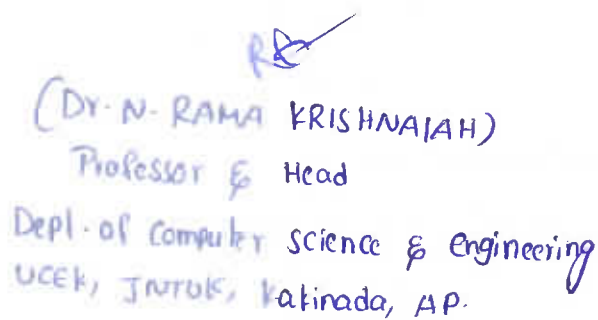 (Dr. N. RAMA KRISHNAIAH)
Professor & Head
Dept. of Computer science & engineering
UCEK, JNTUK, Kakinada, AP.